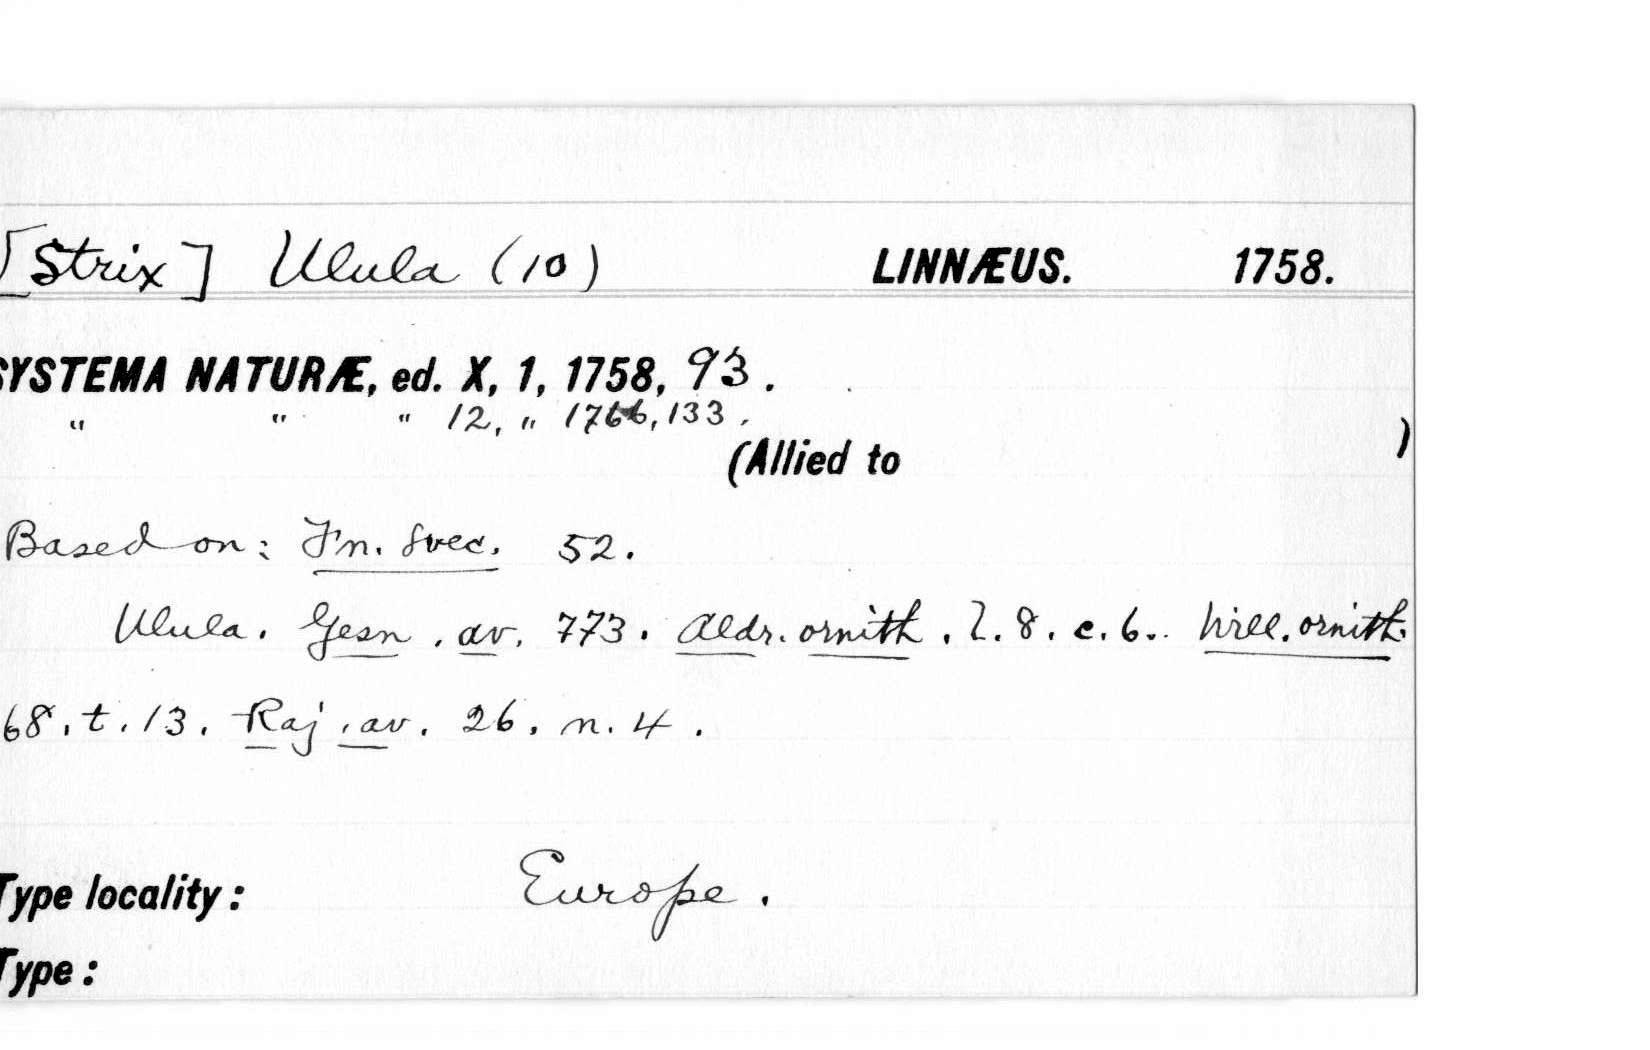 [Strix] Ulula (10) LINNÆUS. 1758.
SYSTEMA NATURÆ, ed. X, 1, 1758, 93.
" " " 12, " 1766, 133.
(Allied to )
Based on: Fn. Svec. 52.
Ulula. Gesn. av. 773. Aldr. ornith. l. 8. c. 6.. Will. ornith.
68. t. 13. Raj. av. 26. n. 4.
Type locality: Europe.
Type: